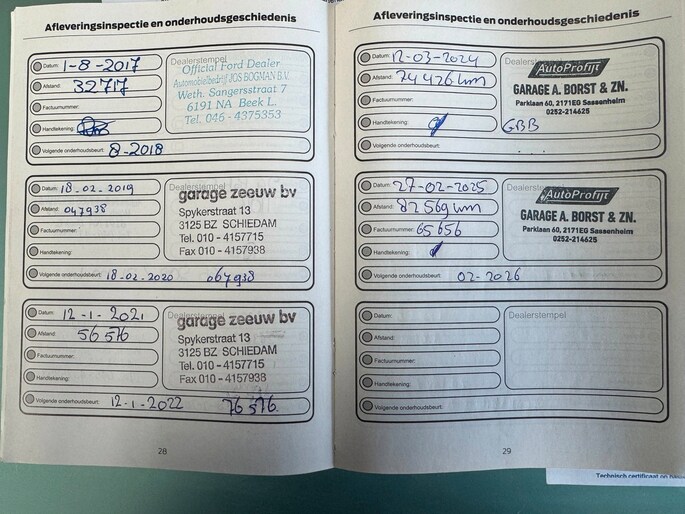 Afleveringsinspectie en onderhoudsgeschiedenis
Datum: 1-8-2017
Afstand: 32717
Factuurnummer:
Handtekening:
Dealerstempel
Official Ford Dealer
Automobielbedrijf JOS BOGMAN B.V.
Weth. Sangersstraat 7
6191 NA Beek L.
Tel. 046 - 4375353
Volgende onderhoudsbeurt: 8-2018
Datum: 18-02-2019
Afstand: 047938
Factuurnummer:
Handtekening:
Dealerstempel
garage zeeuw bv
Spykerstraat 13
3125 BZ SCHIEDAM
Tel. 010 - 4157715
Fax 010 - 4157938
Volgende onderhoudsbeurt: 18-02-2020 067938
Datum: 12-1-2021
Afstand: 56576
Factuurnummer:
Handtekening:
Dealerstempel
garage zeeuw bv
Spykerstraat 13
3125 BZ SCHIEDAM
Tel. 010 - 4157715
Fax 010 - 4157938
Volgende onderhoudsbeurt: 12-1-2022 76576
28
Afleveringsinspectie en onderhoudsgeschiedenis
Datum: 12-03-2024
Afstand: 74426 km
Factuurnummer:
Handtekening:
Dealerstempel
AutoProfijt
GARAGE A. BORST & ZN.
Parklaan 60, 2171EG Sassenheim
0252-214625
GBB
Volgende onderhoudsbeurt:
Datum: 27-02-2025
Afstand: 82569 km
Factuurnummer: 65656
Handtekening:
Dealerstempel
AutoProfijt
GARAGE A. BORST & ZN.
Parklaan 60, 2171EG Sassenheim
0252-214625
Volgende onderhoudsbeurt: 02-2026
Datum:
Afstand:
Factuurnummer:
Handtekening:
Dealerstempel
Volgende onderhoudsbeurt:
29
Technisch certificaat op